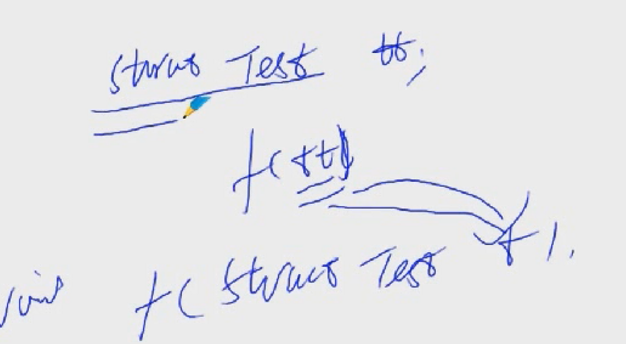 struct Test tt;
f(tt)
void f(struct Test t);